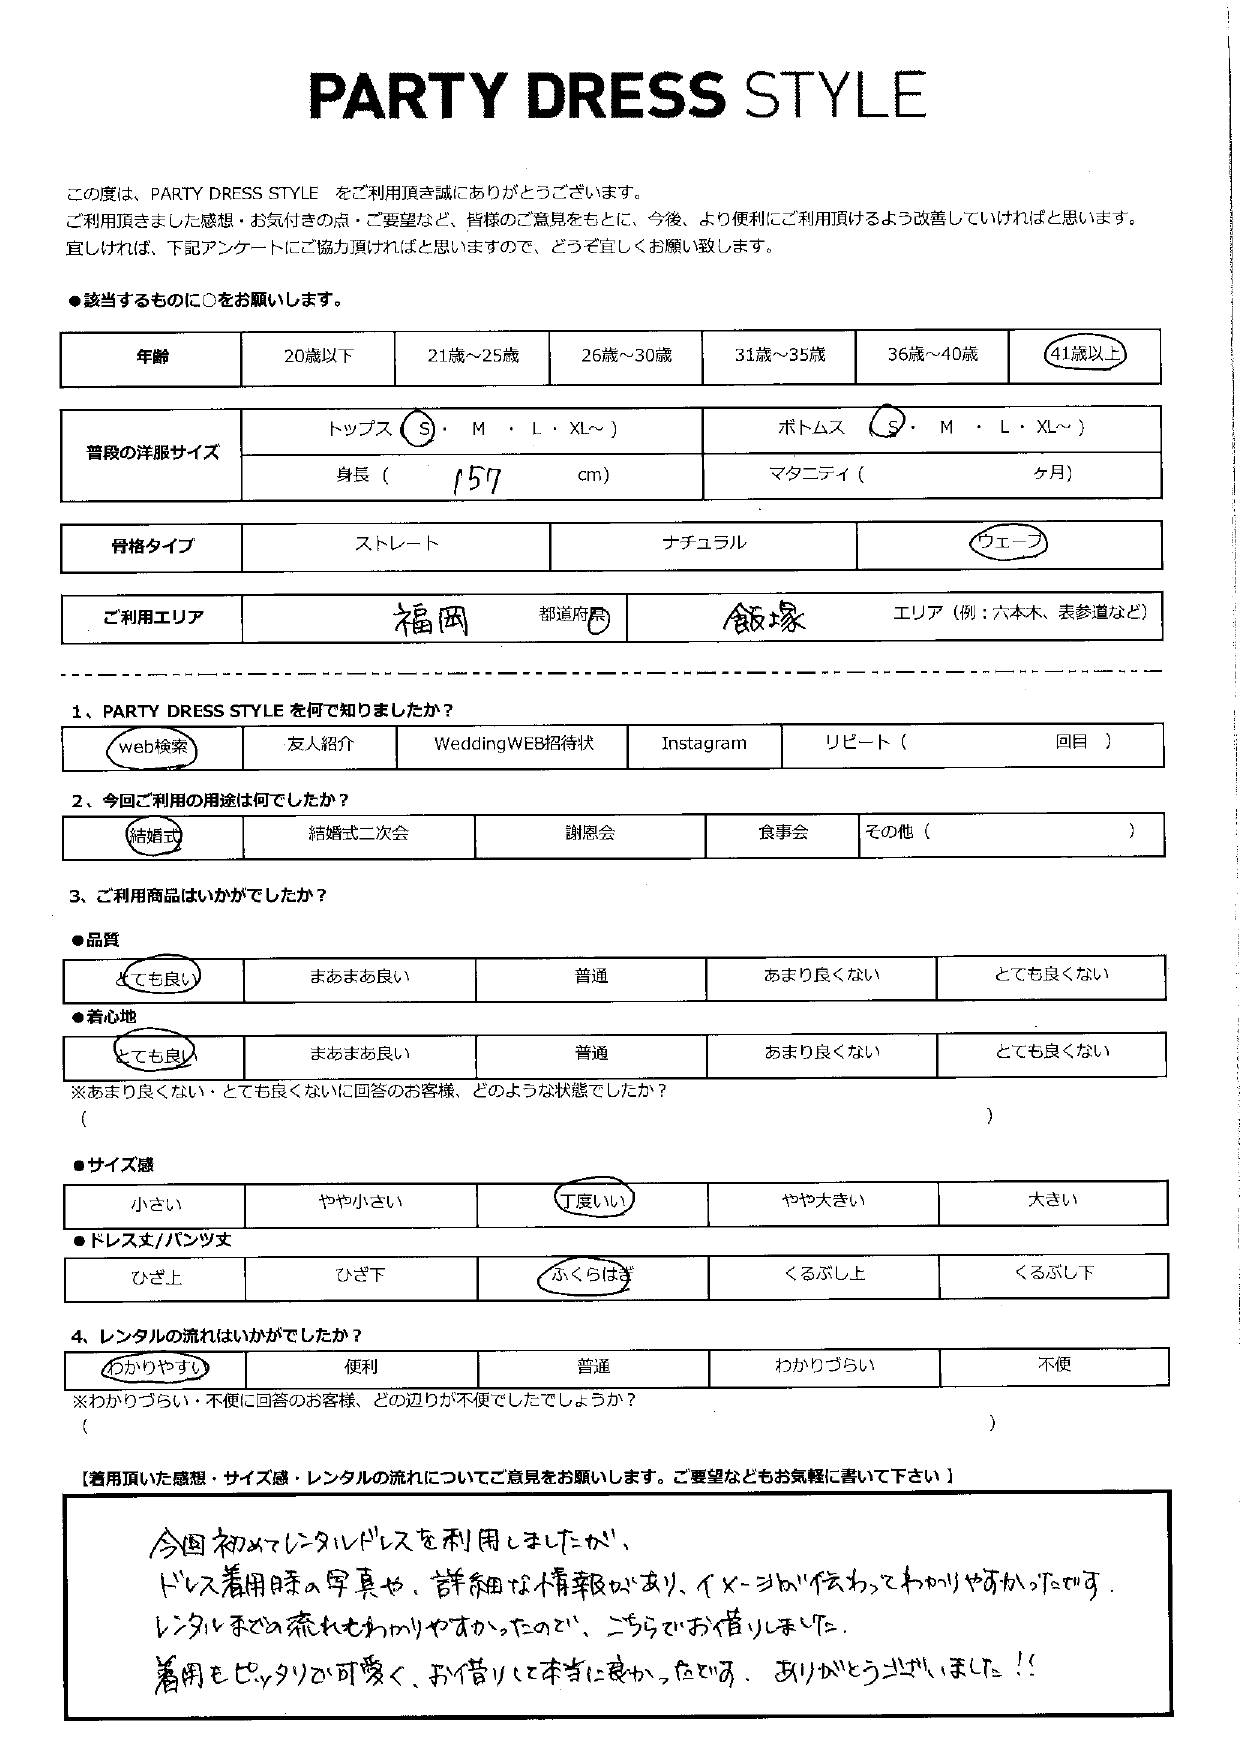 PARTY DRESS STYLE
この度は、PARTY DRESS STYLE をご利用頂き誠にありがとうございます。
ご利用頂きました感想・お気付きの点・ご要望など、皆様のご意見をもとに、今後、より便利にご利用頂けるよう改善していければと思います。
宜しければ、下記アンケートにご協力頂ければと思いますので、どうぞ宜しくお願い致します。
●該当するものに○をお願いします。
年齢 20歳以下 21歳～25歳 26歳～30歳 31歳～35歳 36歳～40歳 41歳以上
普段の洋服サイズ トップス ( S ・ M ・ L ・ XL～ ) ボトムス ( S ・ M ・ L ・ XL～ )
身長 ( 157 cm) マタニティ ( ヶ月)
骨格タイプ ストレート ナチュラル ウェーブ
ご利用エリア 福岡 都道府県 飯塚 エリア（例：六本木、表参道など）
1、PARTY DRESS STYLE を何で知りましたか？
web検索 友人紹介 WeddingWEB招待状 Instagram リピート ( 回目 )
2、今回ご利用の用途は何でしたか？
結婚式 結婚式二次会 謝恩会 食事会 その他 ( )
3、ご利用商品はいかがでしたか？
●品質
とても良い まあまあ良い 普通 あまり良くない とても良くない
●着心地
とても良い まあまあ良い 普通 あまり良くない とても良くない
※あまり良くない・とても良くないに回答のお客様、どのような状態でしたか？
( )
●サイズ感
小さい やや小さい 丁度いい やや大きい 大きい
●ドレス丈/パンツ丈
ひざ上 ひざ下 ふくらはぎ くるぶし上 くるぶし下
4、レンタルの流れはいかがでしたか？
わかりやすい 便利 普通 わかりづらい 不便
※わかりづらい・不便に回答のお客様、どの辺りが不便でしたでしょうか？
( )
【着用頂いた感想・サイズ感・レンタルの流れについてご意見をお願いします。ご要望などもお気軽に書いて下さい 】
今回初めてレンタルドレスを利用しましたが、
ドレス着用時の写真や、詳細な情報があり、イメージが伝わってわかりやすかったです．
レンタルまでの流れもわかりやすかったので、こちらでお借りしました．
着用もピッタリで可愛く、お借りして本当に良かったです．ありがとうございました!!